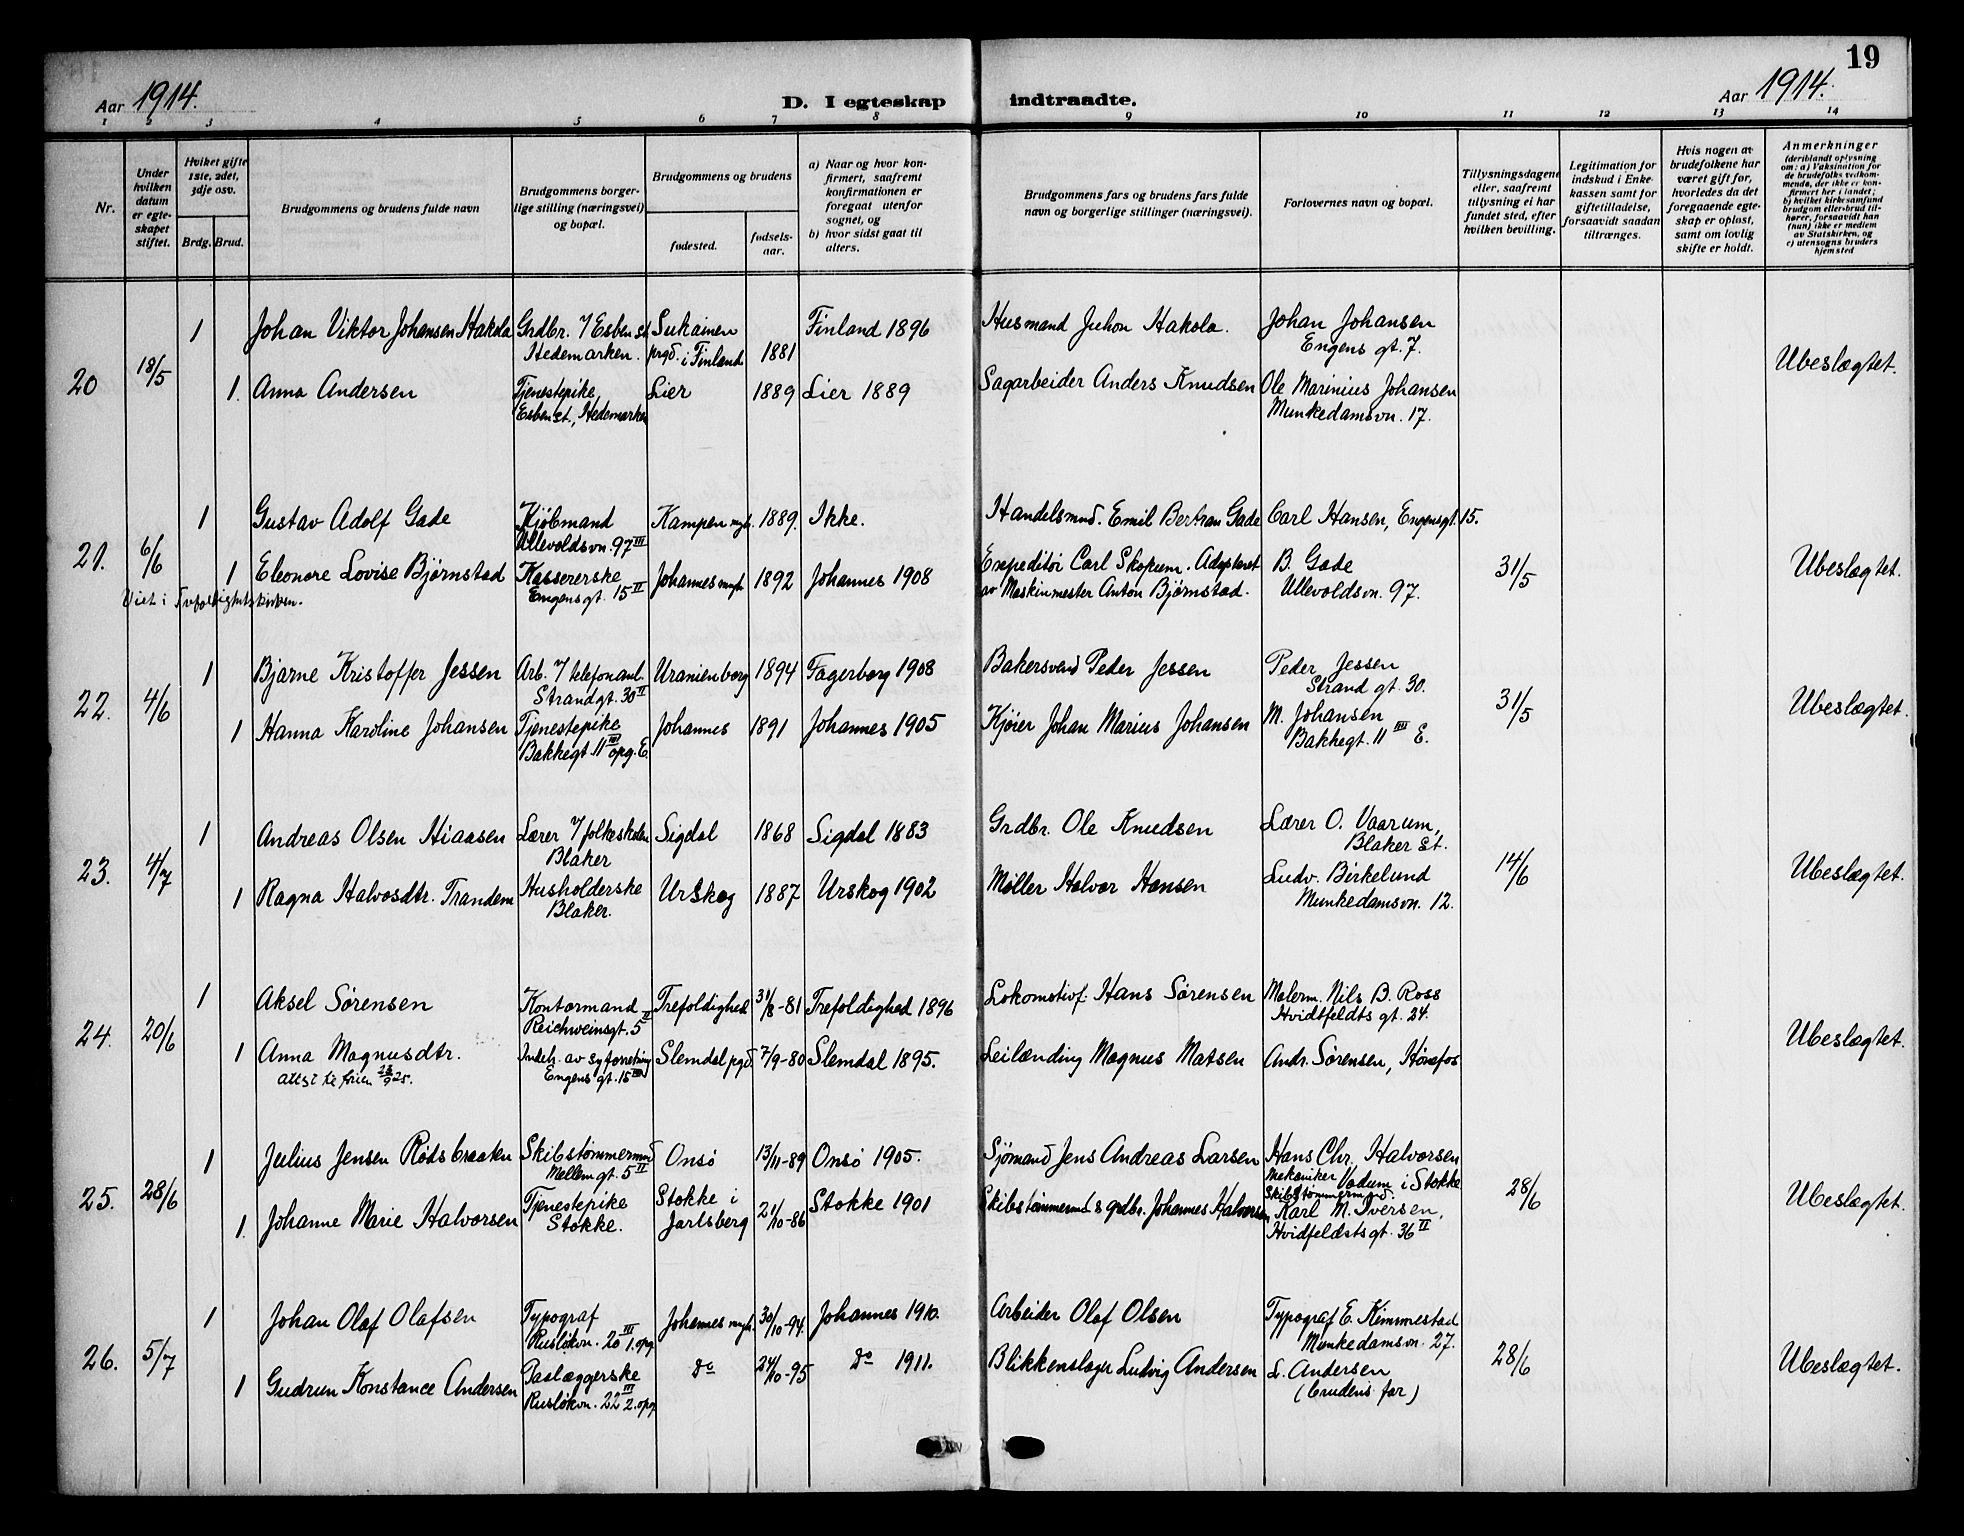 19
Aar 1914.
D. I egteskap indtraadte.
Aar 1914.
1 2 3 4 5 6 7 8 9 10 11 12 13 14
Nr.
Under hvilken datum er egteskapet stiftet.
Hvilket gifte 1ste, 2det, 3dje osv.
Brdg. Brud.
Brudgommens og brudens fulde navn
Brudgommens borgerlige stilling (næringsvei) og bopæl.
Brudgommens og brudens
fødested. fødselsaar.
a) Naar og hvor konfirmert, saafremt konfirmationen er foregaat utenfor sognet, og
b) hvor sidst gaat til alters.
Brudgommens fars og brudens fars fulde navn og borgerlige stillinger (næringsvei).
Forlovernes navn og bopæl.
Tillysningsdagene eller, saafremt tillysning ei har fundet sted, efter hvilken bevilling.
Legitimation for indskud i Enkekassen samt for giftetilladelse, forsaavidt saadan tiltrænges.
Hvis nogen av brudefolkene har været gift før, hvorledes da det foregaaende egteskap er opløst, samt om lovlig skifte er holdt.
Anmerkninger
(deriblandt oplysning om: a) Vaksination for de brudefolks vedkommende, der ikke er konfirmert her i landet; b) hvilket kirkesamfund brudgom eller brud tilhører, forsaavidt han (hun) ikke er medlem av Statskirken, og c) utensogns bruders hjemsted
20 18/5 1 Johan Viktor Johansen Hakola Grdbr. 7 Esben st. Hedemarken. Sukainen prgd. i Finland 1881 Finland 1896 Husmand Juhon Hakola. Johan Johansen Engens gt. 7. Ubeslægtet.
1. Anna Andersen Tjenestepike, Esben st., Hedemarken Lier 1889 Lier 1889 Sagarbeider Anders Knudsen Ole Marinius Johansen Munkedamsvn. 17.
21. 6/6 1 Gustav Adolf Gade Kjøbmand Ullevoldsvn. 97 III Kampen mgh. 1889. Ikke. Handelsmnd. Emil Bertran Gade Carl Hansen, Engensgt. 15. 31/5 Ubeslegtet.
1 Eleonore Lovise Bjørnstad Kassererske Engensgt. 15 II Johannes mgh. 1892 Johannes 1908 Expeditør Carl Skopum. Adopteret av Maskinmester Anton Bjørnstad. B. Gade Ullevoldsvn. 97.
Viet i Trefoldighetskirken.
22. 4/6 1 Bjarne Kristoffer Jessen Arb. 7 telefonanl. Strandgt. 30 II Uranienborg 1894 Fagerborg 1908 Bakersvend Peder Jessen Peder Jessen Strand gt. 30. 31/5 Ubeslægtet.
1 Hanna Karoline Johansen Tjenestepike Bakkegt. 11 III opg. E. Johannes 1891 Johannes 1905 Kjøier Johan Marius Johansen M. Johansen Bakkegt. 11 III E.
23. 4/7 1 Andreas Olsen Hiaasen Lærer 7 folkeskolen Blaker Sigdal 1868 Sigdal 1883 Grdbr. Ole Knudsen Lærer O. Vaarum, Blaker St. 14/6 Ubeslægtet.
1 Ragna Halvosdtr. Trandem Husholderske Blaker. Urskog 1887 Urskog 1902 Møller Halvor Hansen Ludv. Birkelund Munkedamsvn. 12.
24. 20/6 1 Aksel Sørensen Kontormand Reichweinsgt. 5 II Trefoldighed 31/8-81 Trefoldighed 1896 Lokomotivf. Hans Sørensen Malerm. Nils B. Ross Hvidtfeldts gt. 24. Ubeslægtet.
1 Anna Magnusdtr. Indeh. av syforretning Engens gt. 15 III Slemdal pgd. 7/9-80 Slemdal 1895. Leilænding Magnus Matsen Andr. Sørensen, Hønefos
25. 28/6 1 Julius Jensen Rødsbraaten Skibstømmermnd Mellemgt. 5 II Onsø 13/11-89 Onsø 1905. Sjømand Jens Andreas Larsen Hans Chr. Halvorsen Mekaniker Vadum i Stokke 28/6 Ubeslægtet.
1. Johanne Marie Halvorsen Tjenestepike Stokke. Stokke i Jarlsberg 21/10-86 Stokke 1901 Skibstømmermnd & grdbr. Johannes Halvorsen Skibstømmermand. Karl M. Iversen, Hvidfeldtsgt. 36 II
26. 5/7 1 Johan Olaf Olafsen Typograf Rusløkvn. 20 III 1. opg. Johannes mgh. 30/10-94. Johannes 1910. Arbeider Olaf Olsen Typograf E. Kimmestad Munkedamsvn. 27. 28/6 Ubeslægtet.
1 Gudrun Konstance Andersen Paalæggerske Rusløkvn. 22 III 2. opg. do 24/10-95 do 1911. Blikkenslager Ludvig Andersen L. Andersen (brudens far)